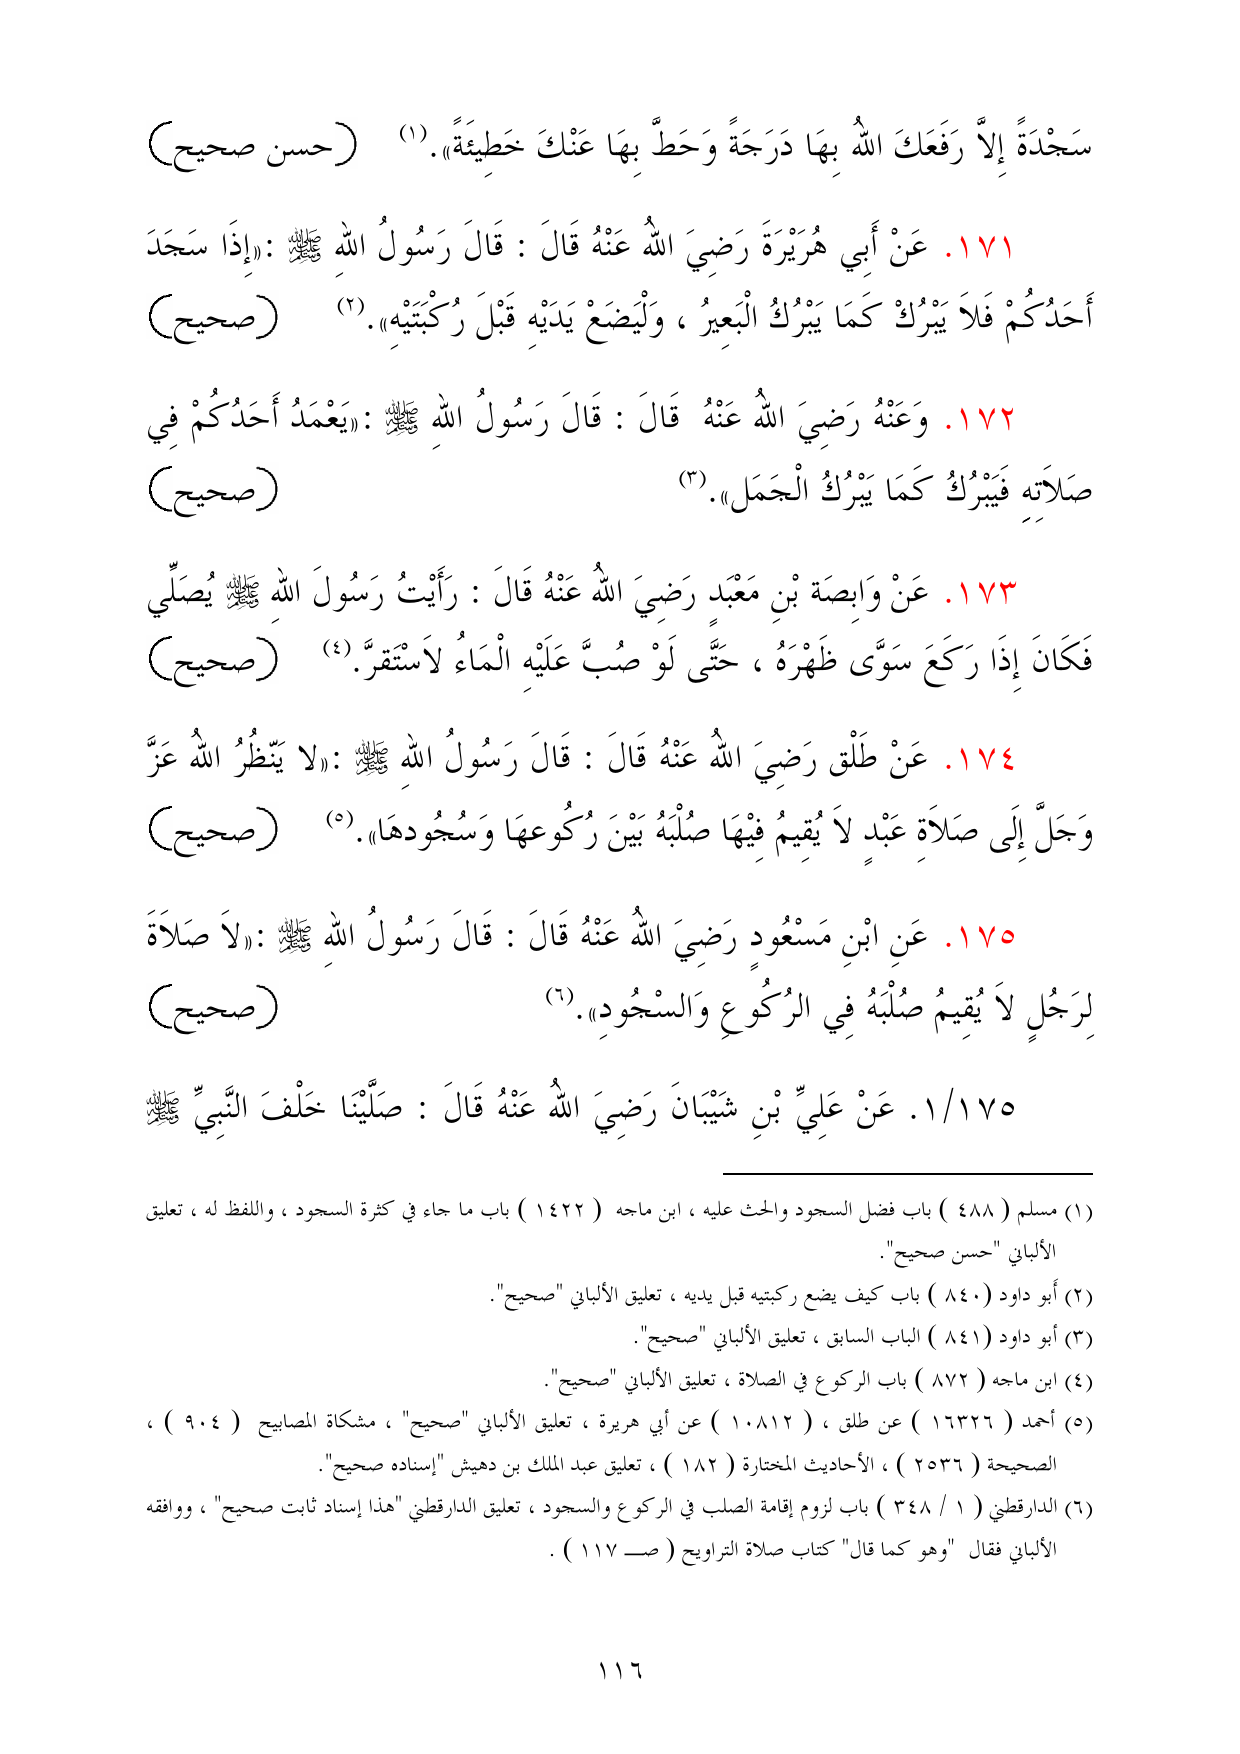 سَجْدَةً إِلاَّ رَفَعَكَ اللهُ بِهَا دَرَجَةً وَحَطَّ بِهَا عَنْكَ خَطِيئَةً». (١) (حسن صحيح)
١٧١. عَنْ أَبِي هُرَيْرَةَ رَضِيَ اللهُ عَنْهُ قَالَ : قَالَ رَسُولُ اللهِ ﷺ :«إِذَا سَجَدَ
أَحَدُكُمْ فَلاَ يَبْرُكْ كَمَا يَبْرُكُ الْبَعِيرُ ، وَلْيَضَعْ يَدَيْهِ قَبْلَ رُكْبَتَيْهِ». (٢) (صحيح)
١٧٢. وَعَنْهُ رَضِيَ اللهُ عَنْهُ قَالَ : قَالَ رَسُولُ اللهِ ﷺ :«يَعْمَدُ أَحَدُكُمْ فِي
صَلاَتِهِ فَيَبْرُكُ كَمَا يَبْرُكُ الْجَمَل». (٣) (صحيح)
١٧٣. عَنْ وَابِصَة بْنِ مَعْبَدٍ رَضِيَ اللهُ عَنْهُ قَالَ : رَأَيْتُ رَسُولَ اللهِ ﷺ يُصَلِّي
فَكَانَ إِذَا رَكَعَ سَوَّى ظَهْرَهُ ، حَتَّى لَوْ صُبَّ عَلَيْهِ الْمَاءُ لاَسْتَقرَّ. (٤) (صحيح)
١٧٤. عَنْ طَلْق رَضِيَ اللهُ عَنْهُ قَالَ : قَالَ رَسُولُ اللهِ ﷺ :«لا يَنّظُرُ اللهُ عَزَّ
وَجَلَّ إِلَى صَلاَةِ عَبْدٍ لاَ يُقِيمُ فِيْهَا صُلْبَهُ بَيْنَ رُكُوعهَا وَسُجُودهَا». (٥) (صحيح)
١٧٥. عَنِ ابْنِ مَسْعُودٍ رَضِيَ اللهُ عَنْهُ قَالَ : قَالَ رَسُولُ اللهِ ﷺ :«لاَ صَلاَةَ
لِرَجُلٍ لاَ يُقِيمُ صُلْبَهُ فِي الرُكُوعِ وَالسْجُودِ». (٦) (صحيح)
١/١٧٥. عَنْ عَلِيِّ بْنِ شَيْبَانَ رَضِيَ اللهُ عَنْهُ قَالَ : صَلَّيْنَا خَلْفَ النَّبِيِّ ﷺ
(١) مسلم ( ٤٨٨ ) باب فضل السجود والحث عليه ، ابن ماجه ( ١٤٢٢ ) باب ما جاء في كثرة السجود ، واللفظ له ، تعليق
الألباني "حسن صحيح".
(٢) أبو داود (٨٤٠ ) باب كيف يضع ركبتيه قبل يديه ، تعليق الألباني "صحيح".
(٣) أبو داود (٨٤١ ) الباب السابق ، تعليق الألباني "صحيح".
(٤) ابن ماجه ( ٨٧٢ ) باب الركوع في الصلاة ، تعليق الألباني "صحيح".
(٥) أحمد ( ١٦٣٢٦ ) عن طلق ، ( ١٠٨١٢ ) عن أبي هريرة ، تعليق الألباني "صحيح" ، مشكاة المصابيح ( ٩٠٤ ) ،
الصحيحة ( ٢٥٣٦ ) ، الأحاديث المختارة ( ١٨٢ ) ، تعليق عبد الملك بن دهيش "إسناده صحيح".
(٦) الدارقطني ( ١ / ٣٤٨ ) باب لزوم إقامة الصلب في الركوع والسجود ، تعليق الدارقطني "هذا إسناد ثابت صحيح" ، ووافقه
الألباني فقال "وهو كما قال" كتاب صلاة التراويح ( صـــ ١١٧ ) .
١١٦